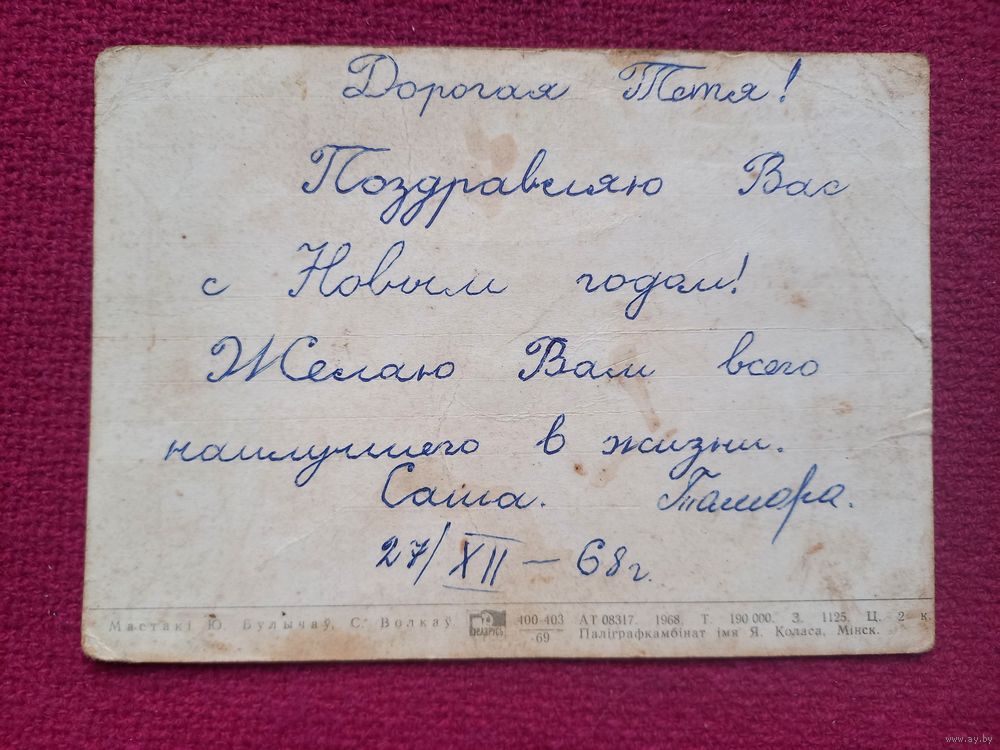 Дорогая Тетя!
Поздравляю Вас
с Новым годом!
Желаю Вам всего
наилучшего в жизни.
Саша. Тамара.
27/XII – 68г.
Мастакі Ю. Булычаў, С. Волкаў
БЕЛАРУСЬ
400-403
69
АТ 08317. 1968. Т. 190 000. З. 1125. Ц. 2 к.
Паліграфкамбінат імя Я. Коласа, Мінск.
www.ay.by